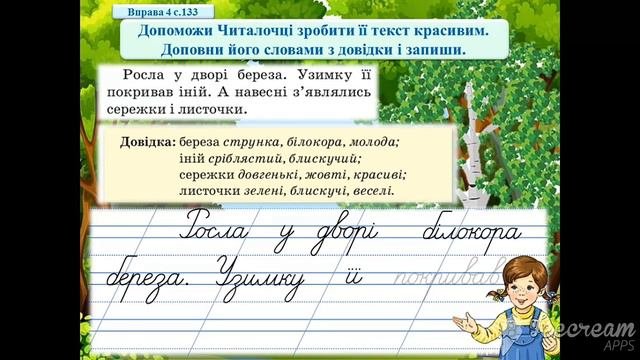 Вправа 4 с.133
Допоможи Читалочці зробити її текст красивим.
Доповни його словами з довідки і запиши.
Росла у дворі береза. Узимку її
покривав іній. А навесні з’являлись
сережки і листочки.
Довідка: береза струнка, білокора, молода;
іній сріблястий, блискучий;
сережки довгенькі, жовті, красиві;
листочки зелені, блискучі, веселі.
Росла у дворі білокора
береза. Узимку її покривав
Icecream
APPS